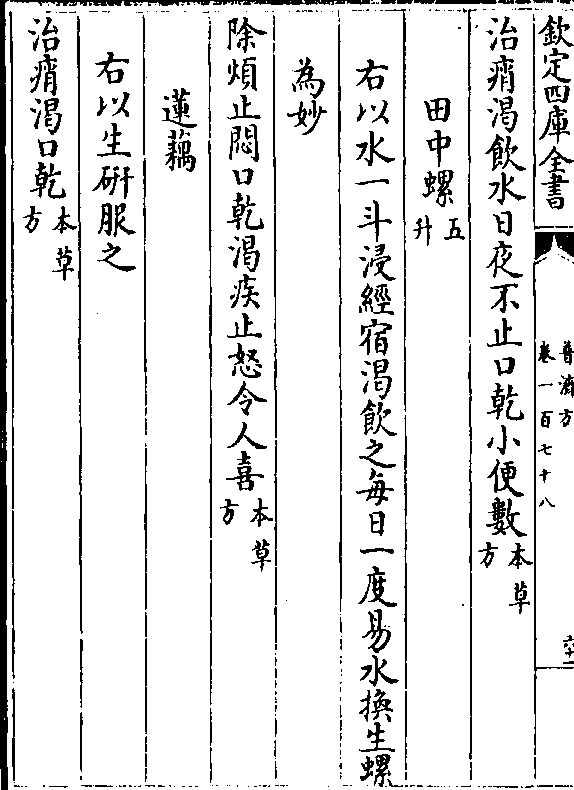 欽定四庫全書
普濟方
卷一百七十八
六十一
治痟渴飲水日夜不止口乾小便數本草方
田中螺五升
右以水一斗浸經宿渴飲之每日一度易水換生螺
為妙
除煩止悶口乾渴疾止怒令人喜本草方
蓮藕
右以生研服之
治痟渴口乾本草方